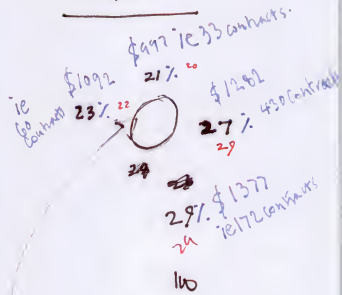 $997 ie 33 contracts.
21% 20
$1092
ie
60
contracts
23% 22
$1282
27% 430 contracts
29
29% $1377
ie 172 contracts
29
100